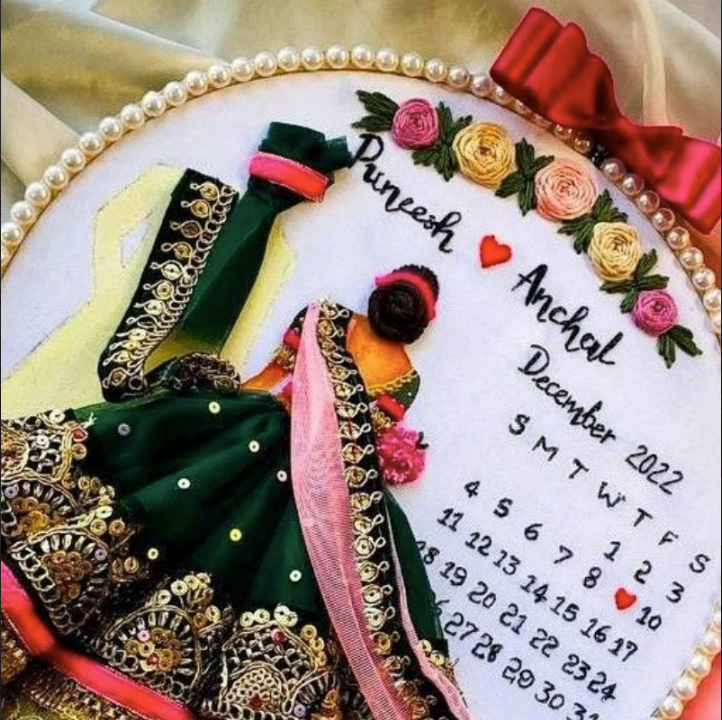 Puneesh ❤ Anchal
December 2022
S M T W T F S
1 2 3
4 5 6 7 8 ❤ 10
11 12 13 14 15 16 17
18 19 20 21 22 23 24
27 28 29 30 31